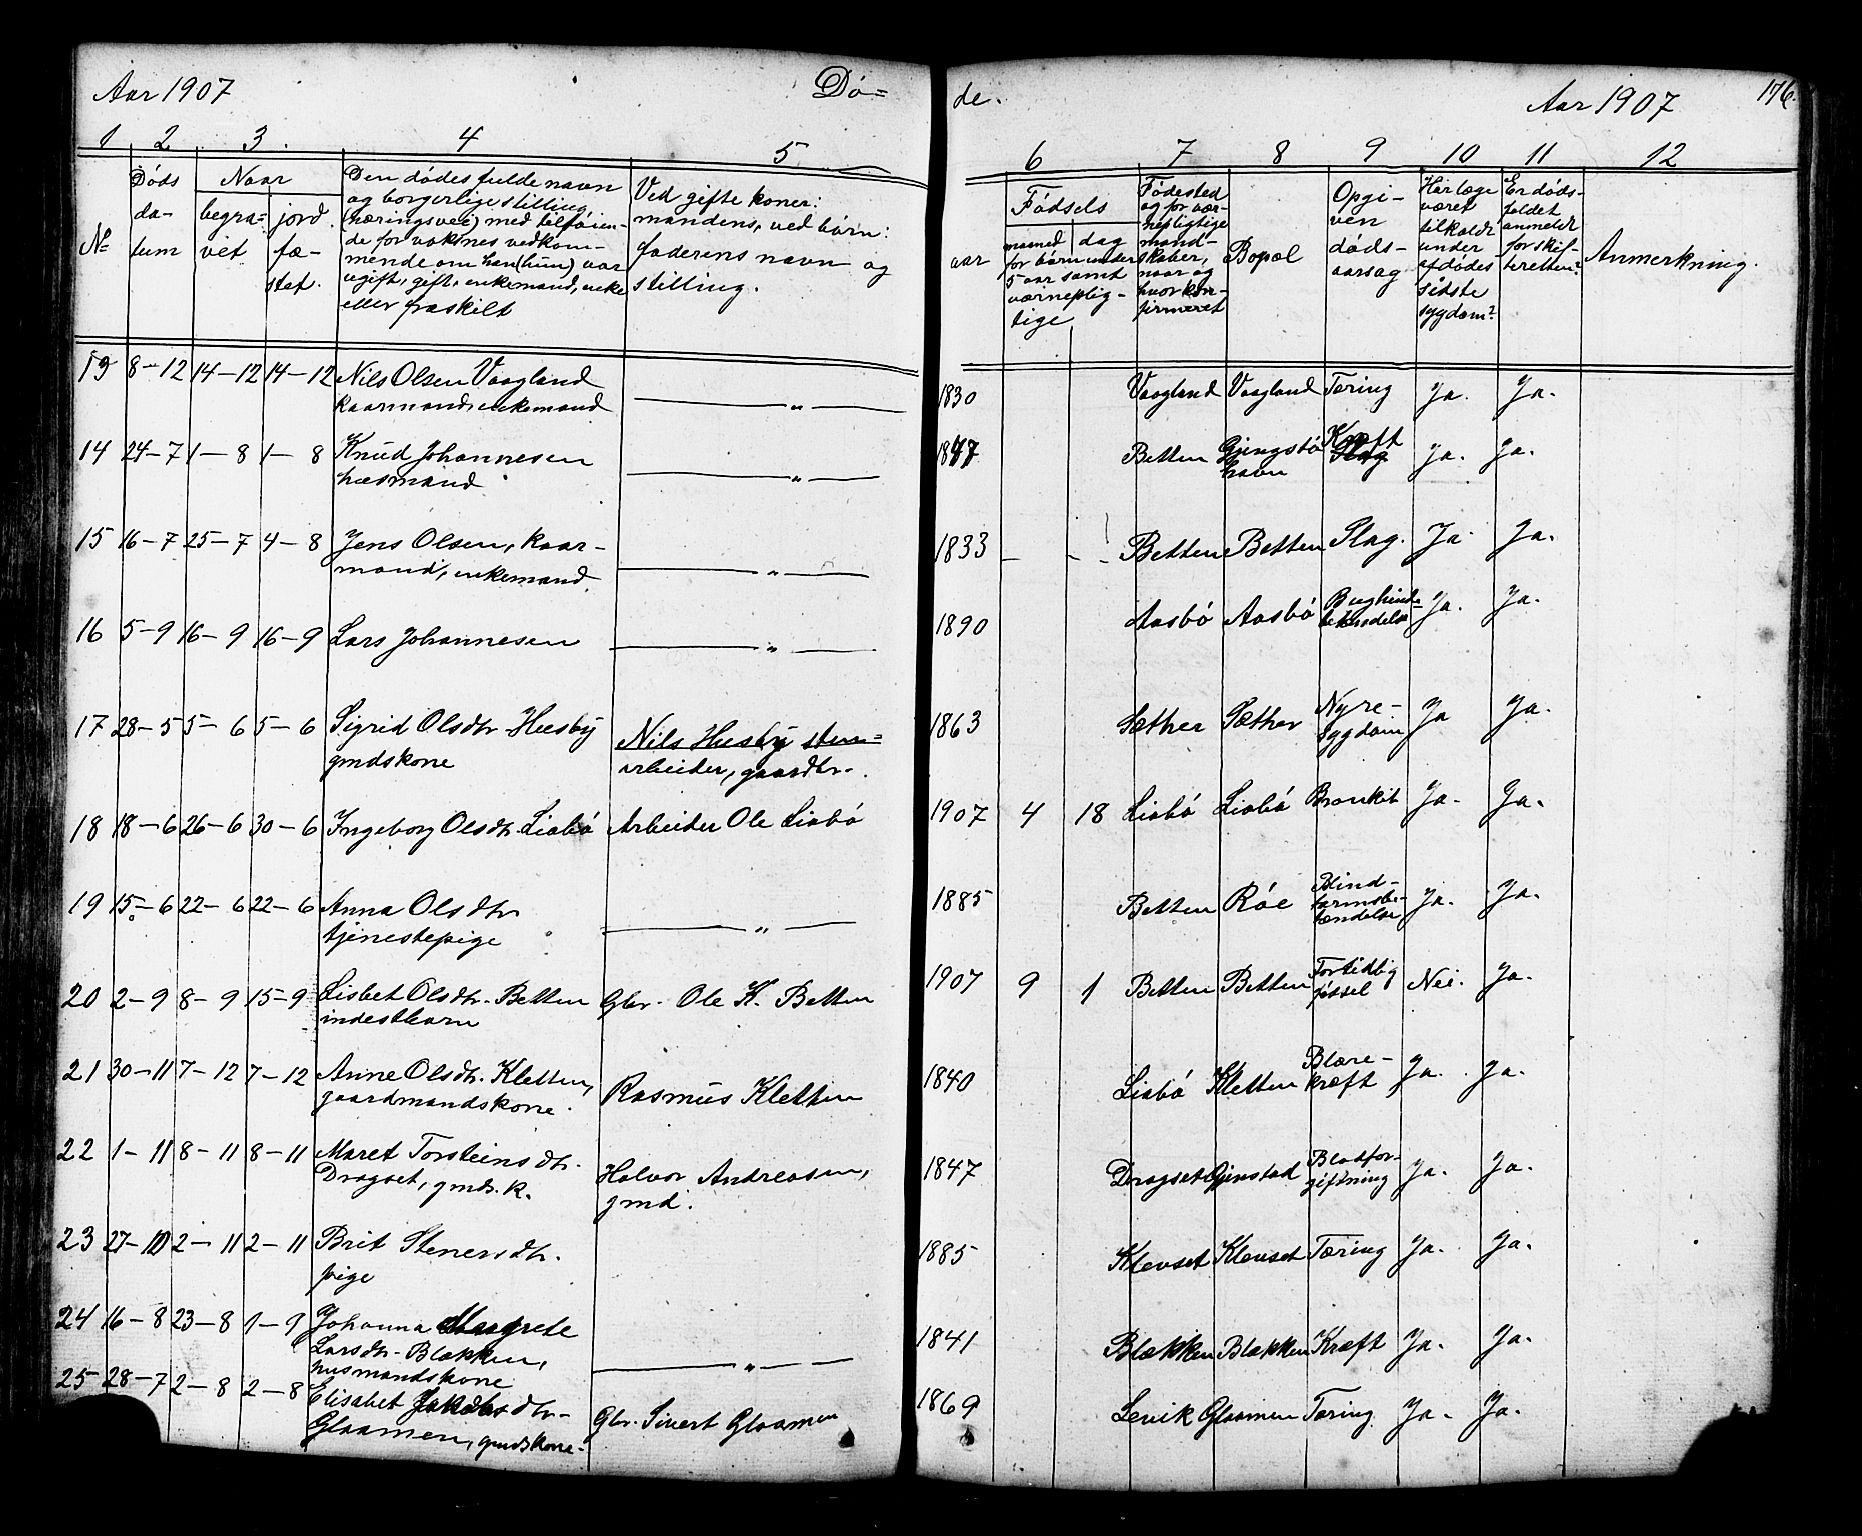 Aar 1907 Dø=
1 2 3. 4 5
No
Døds
da-
tum
Naar
begra=
vet
jord.
fæ-
stet.
Den dødes fulde navn
og borgerlige stilling
(næringsvei) med tilføien-
de for voksnes vedkom-
mende om han (hun) var
ugift, gift, enkemand, enke
eller fraskilt
Ved gifte koner:
mandens, ved børn:
faderens navn og
stilling.
13 8-12 14-12 14-12 Nils Olsen Vaagland
kaarmand, enkemand — „ —
14 24-7 1-8 1-8 Knud Johannesen
husmand — „ —
15 16-7 25-7 4-8 Jens Olsen, kaar-
mand, enkemand — „ —
16 5-9 16-9 16-9 Lars Johannesen — „ —
17 28-5 5-6 5-6 Sigrid Olsdtr. Husby
gmdskone
Nils Husby sten=
arbeider, gaardbr.
18 18-6 26-6 30-6 Ingeborg Olsdtr. Liabø Arbeider Ole Liabø
19 15-6 22-6 22-6 Anna Olsdtr.
tjenestepige — „ —
20 2-9 8-9 15-9 Lisbet Olsdtr. Betten Gbr. Ole K. Betten
indestbarn
21 30-11 7-12 7-12 Anne Olsdtr. Kletten,
gaardmandskone. Rasmus Kletten
22 1-11 8-11 8-11 Maret Torsteinsdtr.
Dragset, gmds.k.
Halvor Andreasen,
gmd.
23 27-10 2-11 2-11 Brit Stenersdtr.
pige
24 16-8 23-8 1-9 Johanna Margrete
Larsdtr. Blækken,
husmandskone — „ —
25 28-7 2-8 2-8 Elisabet Jakobsdtr.
Glaamen, gmdskone- Gbr. Sivert Glaamen
de. Aar 1907 176.
6 7 8 9 10 11 12
aar
Fødsels
maaned dag
for børn under
5 aar samt
værneplig-
tige
Fødested
og for vær-
nepligtige
mand-
skaber,
naar og
hvor kon-
firmeret
Bopæl
Opgi-
ven
døds-
aarsag
Har læge
været
tilkaldt
under
afdødes
sidste
sygdom?
Er døds-
faldet
anmeldt
for skif-
teretten?
Anmerkning.
1830 Vaagland Vaagland Tæring Ja. Ja.
1847 Betten Gjengstø
havn Kræft Ja. Ja.
1833 — - Betten Betten Slag. Ja. Ja.
1890 Aasbø Aasbø Bughinde-
betændelse Ja. Ja.
1863 Sæther Sæther Nyre-
sygdom Ja Ja.
1907 4 18 Liabø Liabø Bronkit Ja. Ja.
1885 Betten Røe Blind-
tarmsbe-
tændelse Ja. Ja.
1907 9 1 Betten Betten For tidlig
fødsel Nei. Ja.
1840 Liabø Kletten Blære-
kræft Ja. Ja.
1847 Dragset Gjenstad Blodfor-
giftning Ja. Ja.
1885 Klevset Klevset Tæring Ja. Ja.
1841 Blækken Blækken Kræft Ja. Ja.
1869 Levik Glaamen Tæring Ja. Ja.